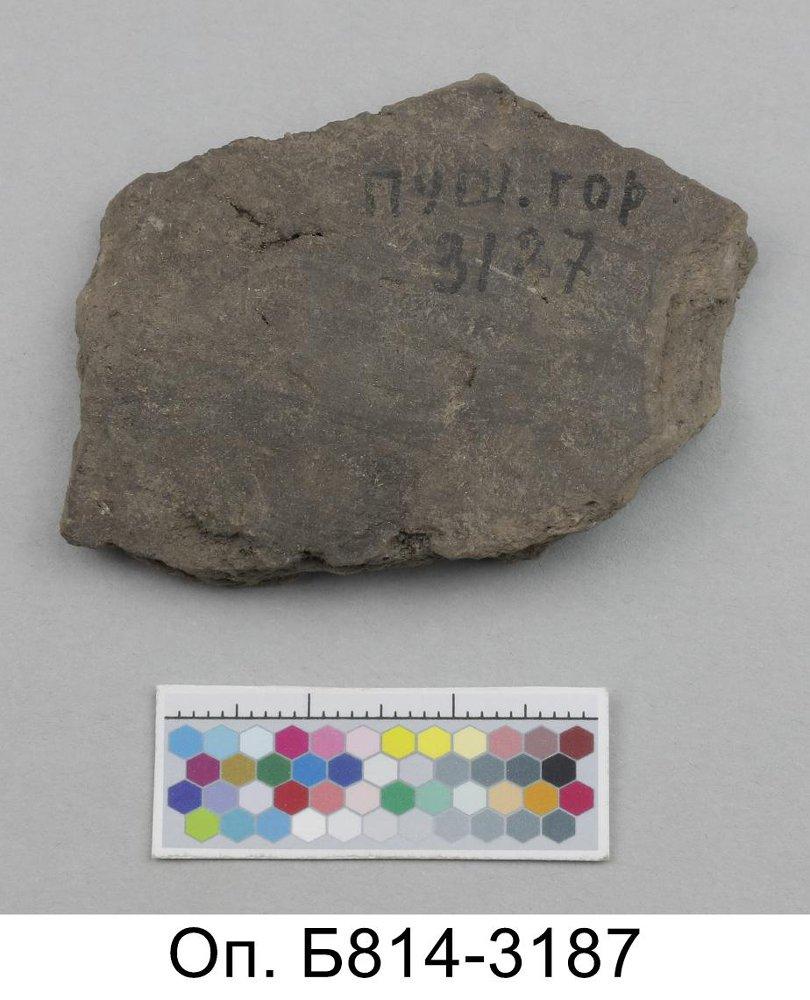 ПУШ. гор
3187
Оп. Б814-3187